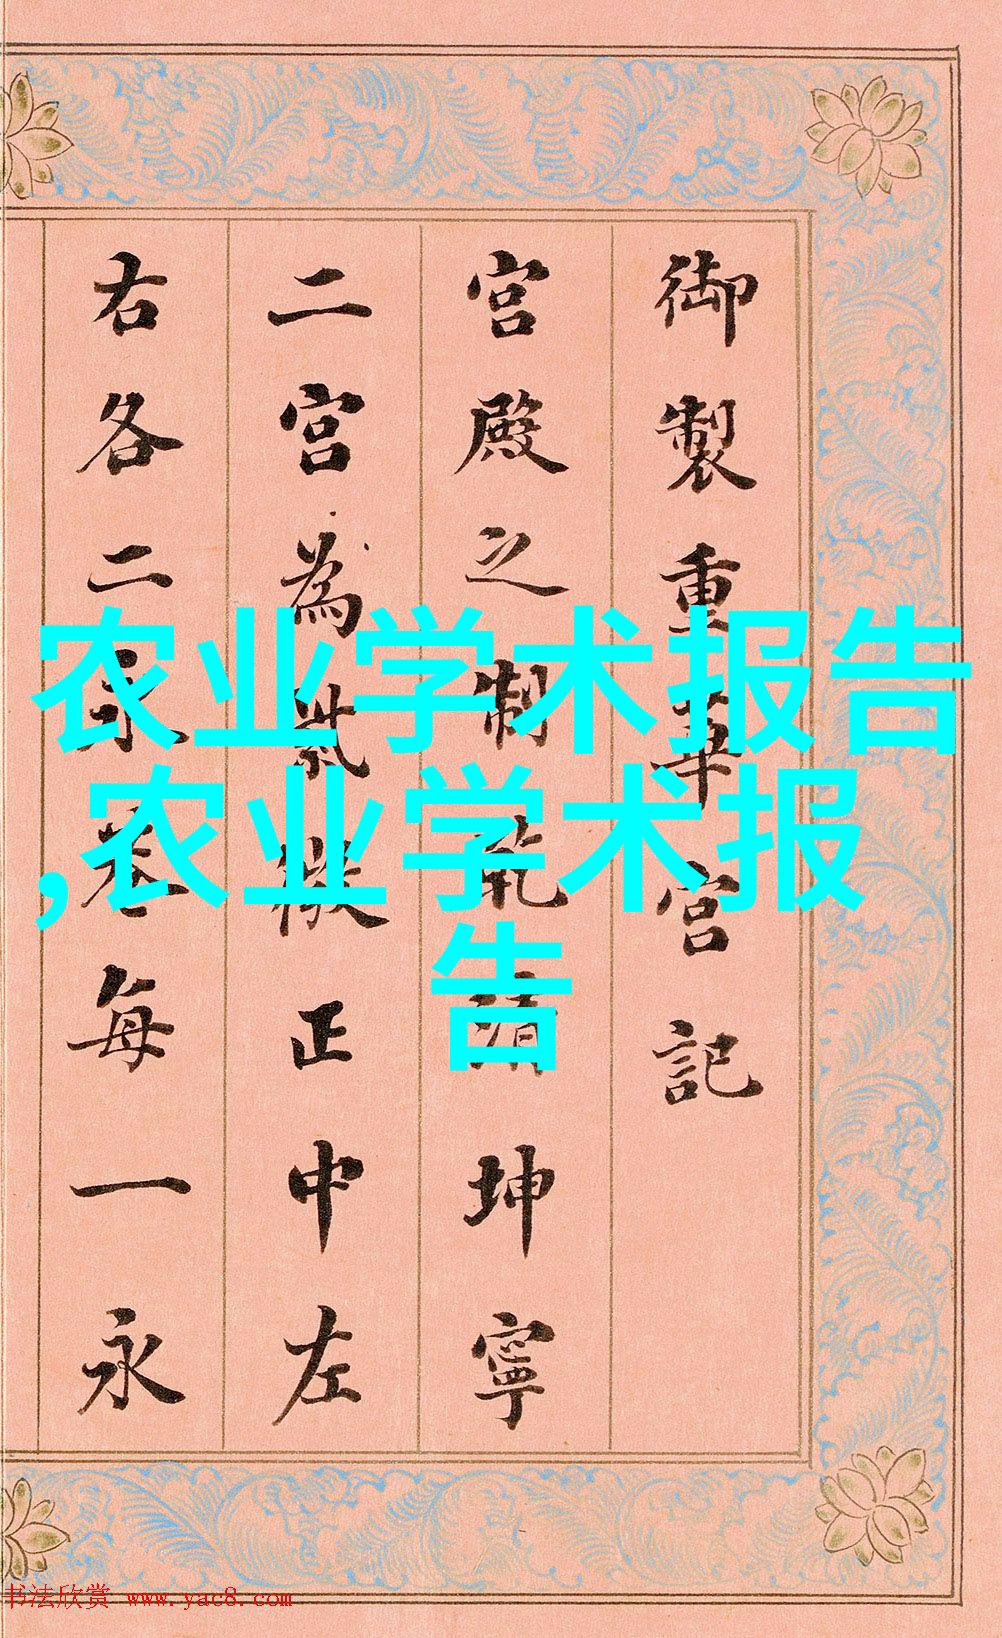 御製重華宮記
宮殿之制乾清坤寧
二宮為紫微正中左
右各二永巷每一永
农业学术报告
,农业学术报
告
书法欣赏 www.yac8.com